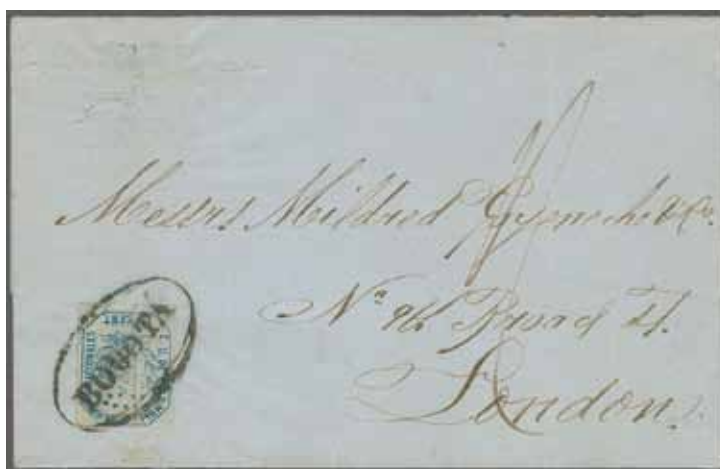 Messrs Mildred Goyeneche & Co.
No 96 Broad St.
London.
BOGOTÁ